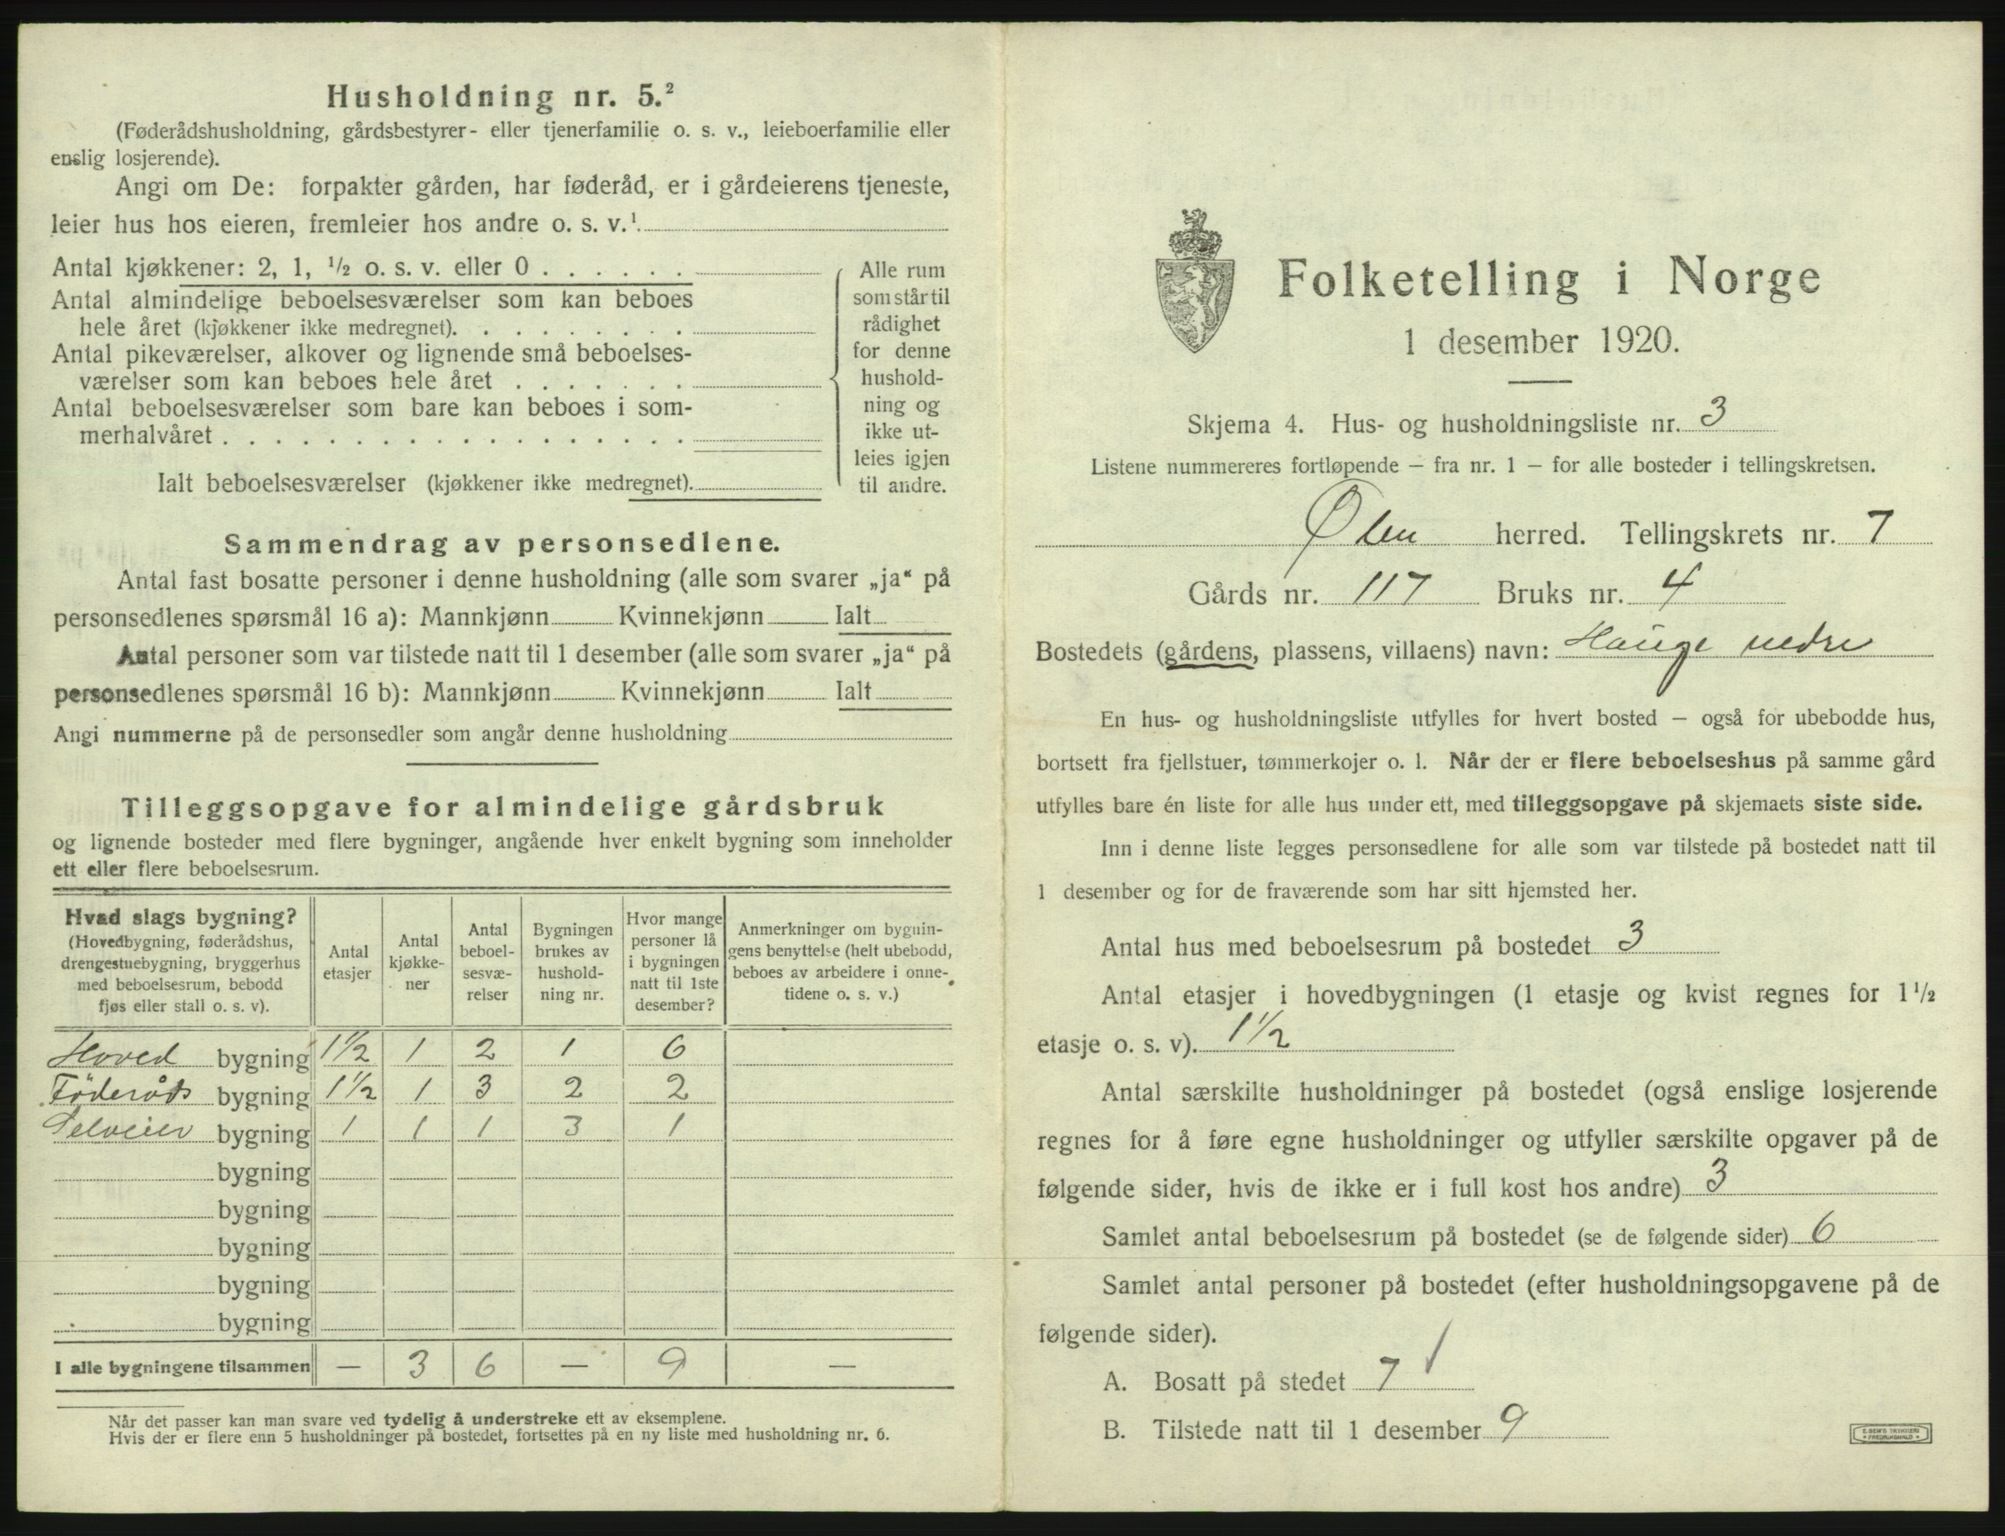 Husholdning nr. 5.²
(Føderådshusholdning, gårdsbestyrer- eller tjenerfamilie o. s. v., leieboerfamilie eller
enslig losjerende).
Angi om De: forpakter gården, har føderåd, er i gårdeierens tjeneste,
leier hus hos eieren, fremleier hos andre o. s. v.¹
Antal kjøkkener: 2, 1, ½ o. s. v. eller 0 . . . . . .
Antal almindelige beboelsesværelser som kan beboes
hele året (kjøkkener ikke medregnet). . . . . . . . .
Antal pikeværelser, alkover og lignende små beboelses-
værelser som kan beboes hele året . . . . . . .
Antal beboelsesværelser som bare kan beboes i som-
merhalvåret . . . . . . . . . . . . . . . . . .
Ialt beboelsesværelser (kjøkkener ikke medregnet).
Alle rum
som står til
rådighet
for denne
hushold-
ning og
ikke ut-
leies igjen
til andre.
Sammendrag av personsedlene.
Antal fast bosatte personer i denne husholdning (alle som svarer „ja“ på
personsedlenes spørsmål 16 a): Mannkjønn Kvinnekjønn Ialt
Antal personer som var tilstede natt til 1 desember (alle som svarer „ja“ på
personsedlenes spørsmål 16 b): Mannkjønn Kvinnekjønn Ialt
Angi nummerne på de personsedler som angår denne husholdning
Tilleggsopgave for almindelige gårdsbruk
og lignende bosteder med flere bygninger, angående hver enkelt bygning som inneholder
ett eller flere beboelsesrum.
Hvad slags bygning?
(Hovedbygning, føderådshus,
drengestuebygning, bryggerhus
med beboelsesrum, bebodd
fjøs eller stall o. s. v).
Antal
etasjer
Antal
kjøkke-
ner
Antal
beboel-
sesvæ-
relser
Bygningen
brukes av
hushold-
ning nr.
Hvor mange
personer lå
i bygningen
natt til 1ste
desember?
Anmerkninger om bygnin-
gens benyttelse (helt ubebodd,
beboes av arbeidere i onne-
tidene o. s. v.)
Hoved bygning 1½ 1 2 1 6
Föderåds bygning 1½ 1 3 2 2
Selveier bygning 1 1 1 3 1
bygning
bygning
bygning
bygning
bygning
I alle bygningene tilsammen — 3 6 — 9 —
Når det passer kan man svare ved tydelig å understreke ett av eksemplene.
Hvis der er flere enn 5 husholdninger på bostedet, fortsettes på en ny liste med husholdning nr. 6.
Folketelling i Norge
1 desember 1920.
Skjema 4. Hus- og husholdningsliste nr. 3
Listene nummereres fortløpende – fra nr. 1 – for alle bosteder i tellingskretsen.
Ølen herred. Tellingskrets nr. 7
Gårds nr. 117 Bruks nr. 4
Bostedets (gårdens, plassens, villaens) navn: Hauge nedre
En hus- og husholdningsliste utfylles for hvert bosted – også for ubebodde hus,
bortsett fra fjellstuer, tømmerkojer o. l. Når der er flere beboelseshus på samme gård
utfylles bare én liste for alle hus under ett, med tilleggsopgave på skjemaets siste side.
Inn i denne liste legges personsedlene for alle som var tilstede på bostedet natt til
1 desember og for de fraværende som har sitt hjemsted her.
Antal hus med beboelsesrum på bostedet 3
Antal etasjer i hovedbygningen (1 etasje og kvist regnes for 1½
etasje o. s. v). 1½
Antal særskilte husholdninger på bostedet (også enslige losjerende
regnes for å føre egne husholdninger og utfyller særskilte opgaver på de
følgende sider, hvis de ikke er i full kost hos andre) 3
Samlet antal beboelsesrum på bostedet (se de følgende sider) 6
Samlet antal personer på bostedet (efter husholdningsopgavene på de
følgende sider).
A. Bosatt på stedet 7
B. Tilstede natt til 1 desember 9